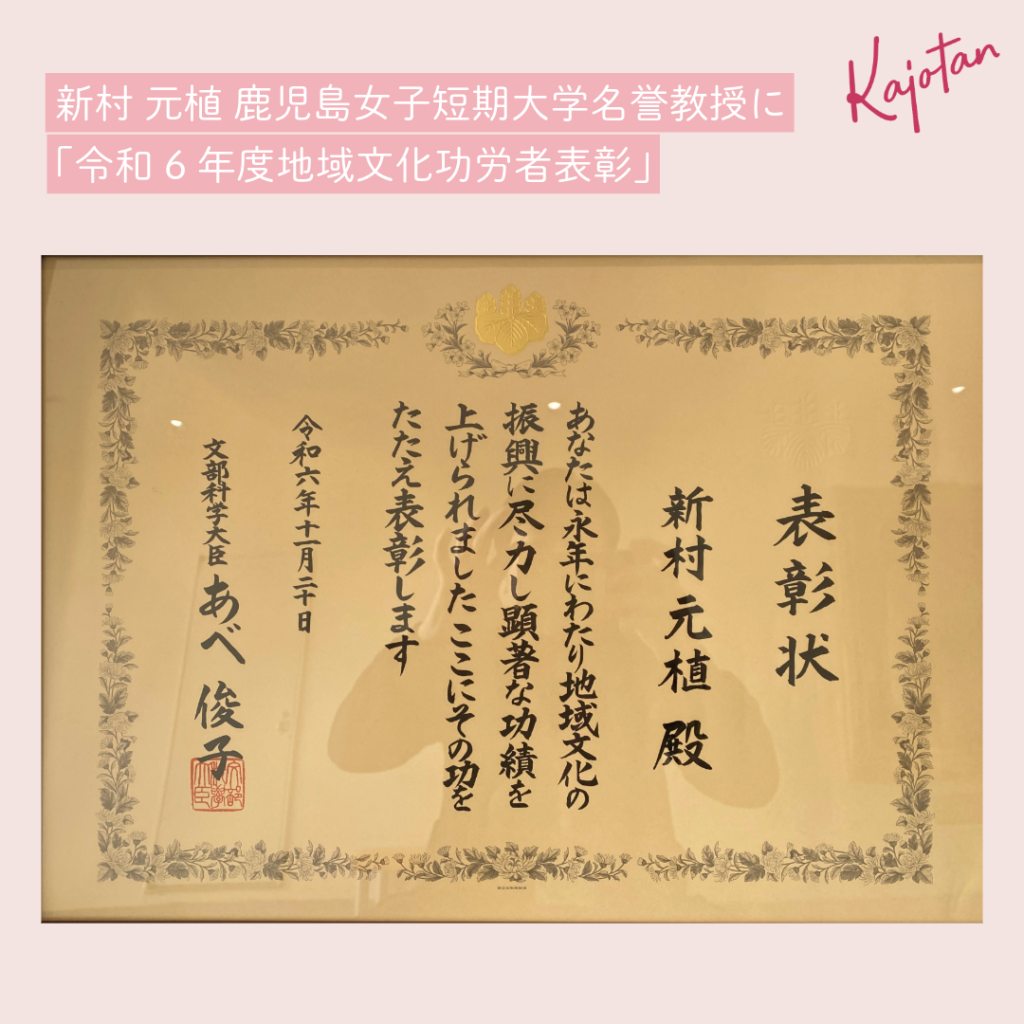 Kajotan
新村 元植 鹿児島女子短期大学名誉教授に
「令和6年度地域文化功労者表彰」
表彰状
新村 元植 殿
あなたは永年にわたり地域文化の
振興に尽力し顕著な功績を
上げられました ここにその功を
たたえ表彰します
令和六年十一月二十日
文部科学大臣 あべ 俊子